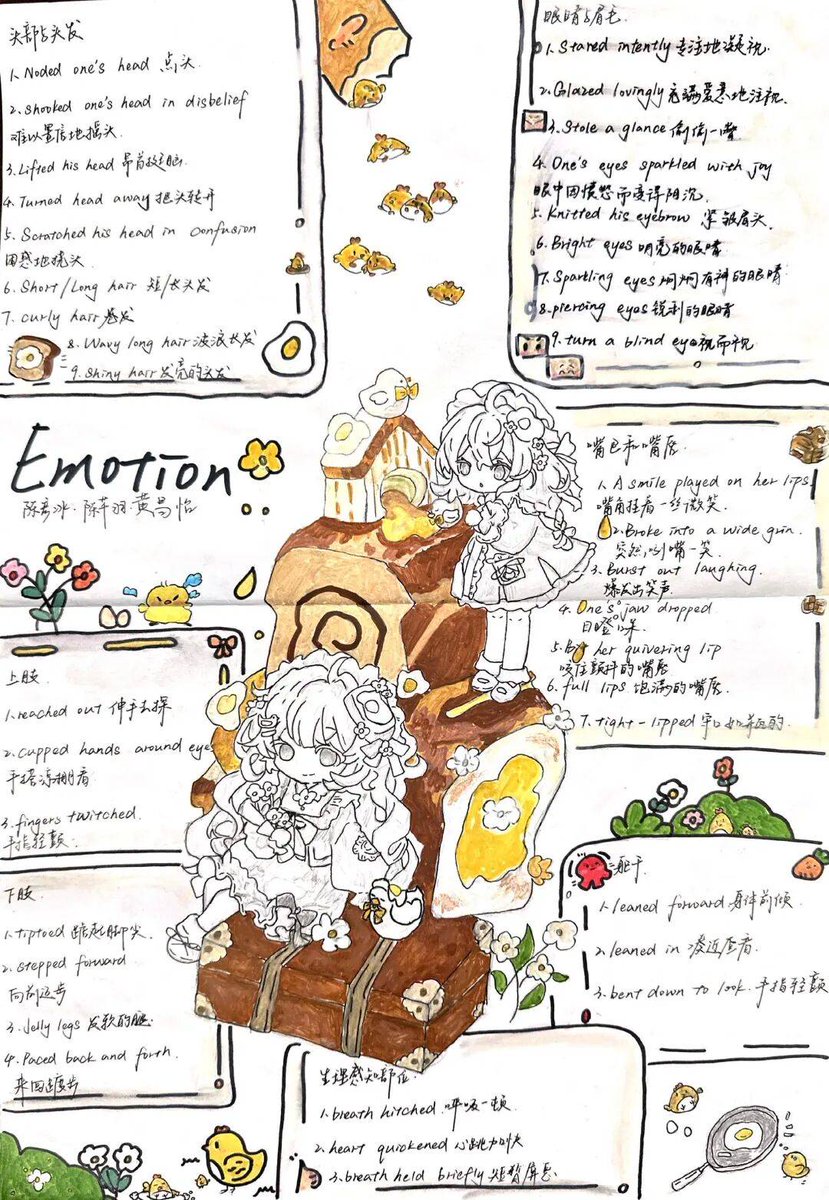 头部与头发
1. Noded one's head 点头.
2. shooked one's head in disbelief
难以置信地摇头.
3. Lifted his head 昂首挺胸
4. Turned head away 把头转开
5. Scratched his head in confusion
困惑地挠头.
6. Short/Long hair 短/长头发
7. curly hair 卷发
8. Wavy long hair 波浪长发
9. Shiny hair 发亮的头发
眼睛与眉毛.
1. Stared intently 专注地凝视.
2. Glazed lovingly 充满爱意地注视.
3. Stole a glance 偷偷一瞥
4. One's eyes sparkled with joy
眼中因愤怒而变得阴沉.
5. Knitted his eyebrow 紧皱眉头.
6. Bright eyes 明亮的眼睛
7. Sparkling eyes 炯炯有神的眼睛
8. piercing eyes 锐利的眼睛
9. turn a blind eye 视而
Emotion
陈 冰. 陈 羽 黄 怡
嘴巴和嘴唇.
1. A smile played on her lips
嘴角挂着一丝微笑.
2. Broke into a wide grin.
突然咧嘴一笑.
3. Burst out laughing.
爆发出笑声.
4. One's jaw dropped
目瞪口呆
5. Bit her quivering lip
咬住颤抖的嘴唇
6. full lips 饱满的嘴唇.
7. tight-lipped 守口如瓶的
上肢
1. reached out 伸手去探
2. cupped hands around eye
手搭凉棚看
3. fingers twitched.
手指轻颤.
下肢
1. tiptoed 踮起脚尖.
2. stepped forward
向前迈步
3. Jelly legs 发软的腿
4. Paced back and forth.
来回踱步
躯干
1. leaned forward 身体前倾
2. leaned in 凑近查看.
3. bent down to look. 手指轻颤
生理感知部位.
1. breath hitched 呼吸一顿.
2. heart quickened 心跳加快
3. breath held briefly 短暂屏息